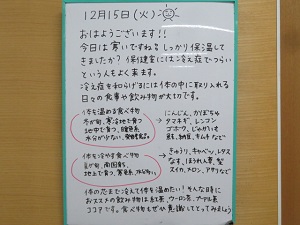 12月15日(火)
おはようございます!!
今日は寒いですね しっかり保温して
きましたか? 保健室には冷え症でつらい
という人もよく来ます。
冷え症を和らげるには体の中に取り入れる
日々の食事や飲み物が大切です。
体を温める食べ物
冬が旬、寒冷地で育つ
地中で育つ、暖色系
水分が少ない、
→ にんじん、かぼちゃ
タマネギ、レンコン
ゴボウ、じゃがいも
キムチなど
体を冷やす食べ物
夏が旬、南国
地上で育つ、寒色系、水分
→ きゅうり、キャベツ、レタス
なす、ほうれん草、
スイカ、メロン、アサリなど
体の芯まで冷えて体を温めたい!そんな時に
おススメの飲み物は紅茶、ウーロン茶、
ココアです。食べ物もぜひ意識してとってみましょう